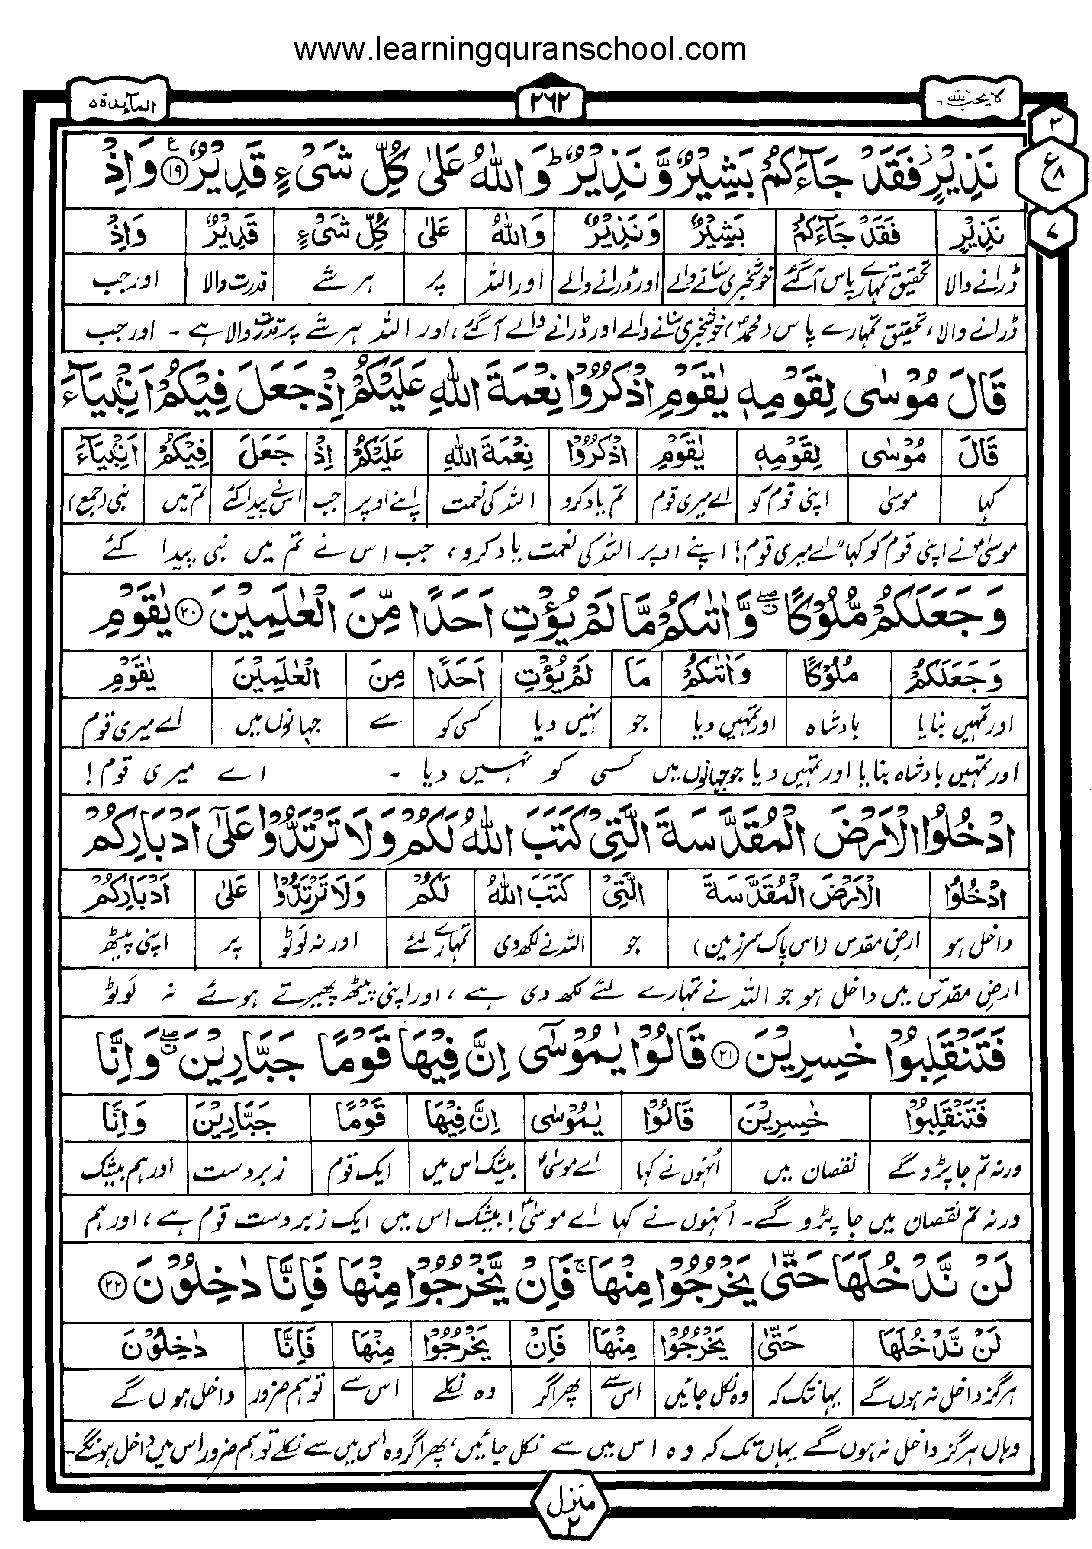 www.learningquranschool.com
لا يحب الله ٦
٢٦٢
المآئدة ٥
٣
ع ٨
٧
نَذِيْرٍ فَقَدْ جَآءَكُمْ بَشِيْرٌ وَّنَذِيْرٌ ؕ وَاللّٰهُ عَلٰى كُلِّ شَىْءٍ قَدِيْرٌ ۧ ﴿١٩﴾ وَاِذْ
نَذِيْرٍ فَقَدْ جَآءَكُمْ بَشِيْرٌ وَّنَذِيْرٌ وَاللّٰهُ عَلٰى كُلِّ شَىْءٍ قَدِيْرٌ وَاِذْ
ڈرانے والا تحقیق تمہارے پاس آگئے خوشخبری سنانے والے اور ڈرانے والے اور اللہ پر ہر شے قدرت والا اور جب
ڈرانے والا، تحقیق تمہارے پاس (محمدؐ) خوشخبری سنانے والے اور ڈرانے والے آگئے، اور اللہ ہر شے پر قدرت والا ہے ۔ اور جب
قَالَ مُوْسٰى لِقَوْمِهٖ يٰقَوْمِ اذْكُرُوْا نِعْمَةَ اللّٰهِ عَلَيْكُمْ اِذْ جَعَلَ فِيْكُمْ اَنْۢبِيَآءَ
قَالَ مُوْسٰى لِقَوْمِهٖ يٰقَوْمِ اذْكُرُوْا نِعْمَةَ اللّٰهِ عَلَيْكُمْ اِذْ جَعَلَ فِيْكُمْ اَنْۢبِيَآءَ
کہا موسیٰ اپنی قوم کو اے میری قوم تم یاد کرو اللہ کی نعمت اپنے اوپر جب اس نے پیدا کئے تم میں نبی (جمع)
موسیٰؑ نے اپنی قوم کو کہا اے میری قوم! اپنے اوپر اللہ کی نعمت یاد کرو، جب اس نے تم میں نبی پیدا کئے
وَجَعَلَكُمْ مُّلُوْكًا ۖ وَّاٰتٰىكُمْ مَّا لَمْ يُؤْتِ اَحَدًا مِّنَ الْعٰلَمِيْنَ ﴿٢٠﴾ يٰقَوْمِ
وَجَعَلَكُمْ مُلُوْكًا وَاٰتٰىكُمْ مَا لَمْ يُؤْتِ اَحَدًا مِنَ الْعٰلَمِيْنَ يٰقَوْمِ
اور تمہیں بنایا بادشاہ اور تمہیں دیا جو نہیں دیا کسی کو سے جہانوں میں اے میری قوم
اور تمہیں بادشاہ بنایا اور تمہیں دیا جو جہانوں میں کسی کو نہیں دیا ۔ اے میری قوم!
ادْخُلُوا الْاَرْضَ الْمُقَدَّسَةَ الَّتِىْ كَتَبَ اللّٰهُ لَكُمْ وَلَا تَرْتَدُّوْا عَلٰٓى اَدْبَارِكُمْ
ادْخُلُوا الْاَرْضَ الْمُقَدَّسَةَ الَّتِىْ كَتَبَ اللّٰهُ لَكُمْ وَلَا تَرْتَدُّوْا عَلٰى اَدْبَارِكُمْ
داخل ہو ارضِ مقدس (اس پاک سرزمین) جو اللہ نے لکھ دی تمہارے لئے اور نہ لوٹو پر اپنی پیٹھ
ارضِ مقدّس میں داخل ہو جو اللہ نے تمہارے لئے لکھ دی ہے، اور اپنی پیٹھ پھیرتے ہوئے نہ لوٹو
فَتَنْقَلِبُوْا خٰسِرِيْنَ ﴿٢١﴾ قَالُوْا يٰمُوْسٰٓى اِنَّ فِيْهَا قَوْمًا جَبَّارِيْنَ ۖ وَاِنَّا
فَتَنْقَلِبُوْا خٰسِرِيْنَ قَالُوْا يٰمُوْسٰى اِنَّ فِيْهَا قَوْمًا جَبَّارِيْنَ وَاِنَّا
ورنہ تم جا پڑو گے نقصان میں اُنہوں نے کہا اے موسیٰؑ بیشک اس میں ایک قوم زبردست اور ہم بیشک
ورنہ تم نقصان میں جا پڑو گے۔ اُنہوں نے کہا اے موسیٰؑ! بیشک اس میں ایک زبردست قوم ہے، اور ہم
لَنْ نَّدْخُلَهَا حَتّٰى يَخْرُجُوْا مِنْهَا ۚ فَاِنْ يَّخْرُجُوْا مِنْهَا فَاِنَّا دٰخِلُوْنَ ﴿٢٢﴾
لَنْ نَّدْخُلَهَا حَتّٰى يَخْرُجُوْا مِنْهَا فَاِنْ يَخْرُجُوْا مِنْهَا فَاِنَّا دٰخِلُوْنَ
ہرگز داخل نہ ہوں گے یہانتک کہ وہ نکل جائیں اس سے پھر اگر وہ نکلے اس سے تو ہم ضرور داخل ہوں گے
وہاں ہرگز داخل نہ ہوں گے یہاں تک کہ وہ اس میں سے نکل جائیں، پھر اگر وہ اس میں سے نکلے تو ہم ضرور اس میں داخل ہونگے۔
منزل ٢